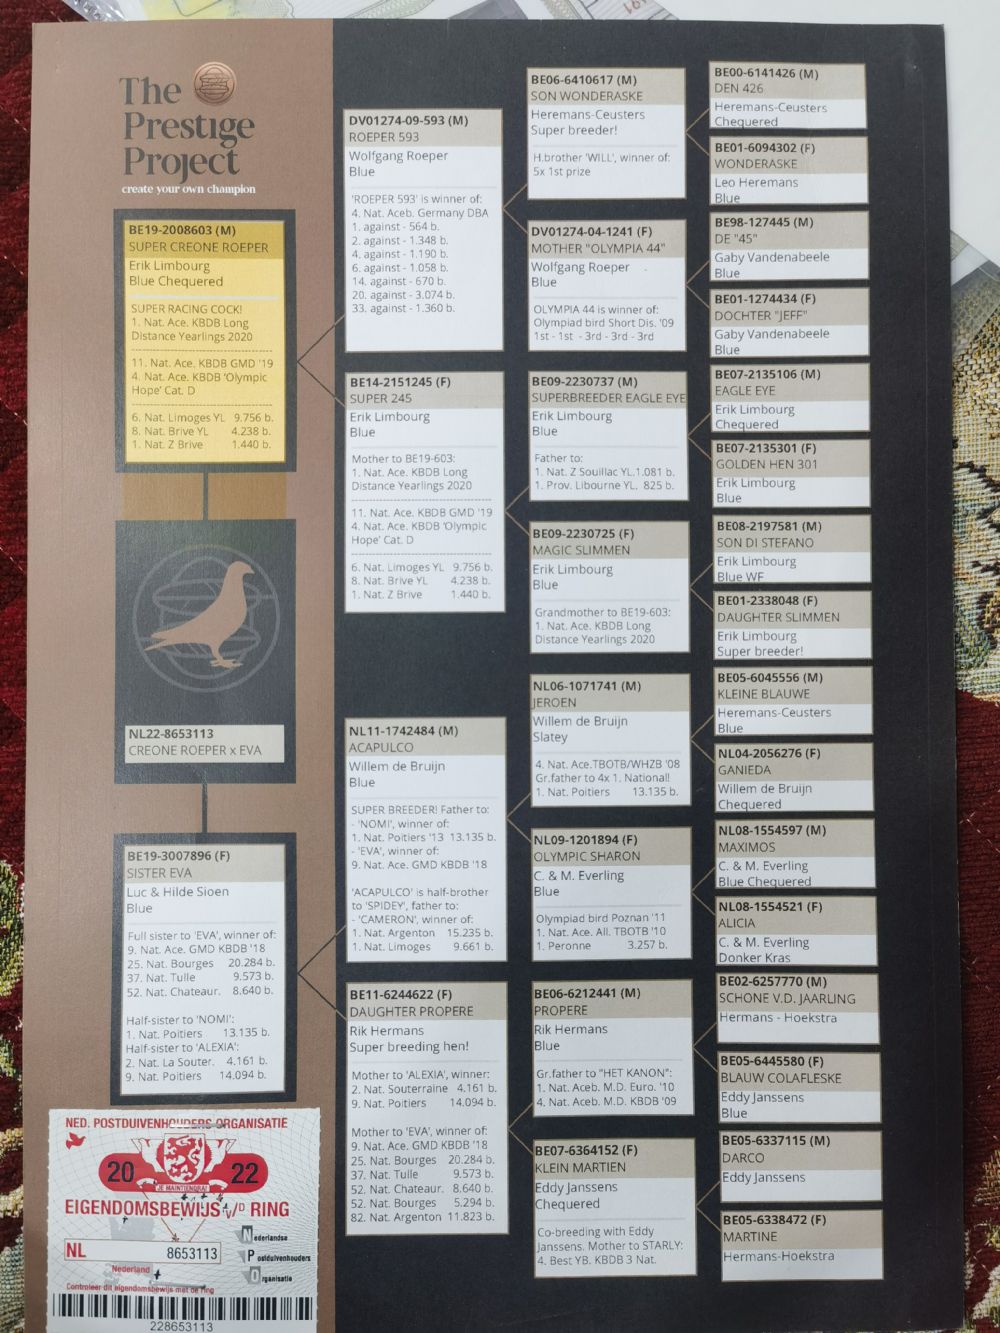 The
Prestige
Project
create your own champion
BE19-2008603 (M)
SUPER CREONE ROEPER
Erik Limbourg
Blue Chequered
SUPER RACING COCK!
1. Nat. Ace. KBDB Long
Distance Yearlings 2020
11. Nat. Ace. KBDB GMD '19
4. Nat. Ace. KBDB 'Olympic
Hope' Cat. D
6. Nat. Limoges YL 9.756 b.
8. Nat. Brive YL 4.238 b.
1. Nat. Z Brive 1.440 b.
NL22-8653113
CREONE ROEPER x EVA
BE19-3007896 (F)
SISTER EVA
Luc & Hilde Sioen
Blue
Full sister to 'EVA', winner of:
9. Nat. Ace. GMD KBDB '18
25. Nat. Bourges 20.284 b.
37. Nat. Tulle 9.573 b.
52. Nat. Chateaur. 8.640 b.
Half-sister to 'NOMI':
1. Nat. Poitiers 13.135 b.
Half-sister to 'ALEXIA':
2. Nat. La Souter. 4.161 b.
9. Nat. Poitiers 14.094 b.
DV01274-09-593 (M)
ROEPER 593
Wolfgang Roeper
Blue
'ROEPER 593' is winner of:
4. Nat. Aceb. Germany DBA
1. against - 564 b.
2. against - 1.348 b.
4. against - 1.190 b.
6. against - 1.058 b.
14. against - 670 b.
20. against - 3.074 b.
33. against - 1.360 b.
BE14-2151245 (F)
SUPER 245
Erik Limbourg
Blue
Mother to BE19-603:
1. Nat. Ace. KBDB Long
Distance Yearlings 2020
11. Nat. Ace. KBDB GMD '19
4. Nat. Ace. KBDB 'Olympic
Hope' Cat. D
6. Nat. Limoges YL 9.756 b.
8. Nat. Brive YL 4.238 b.
1. Nat. Z Brive 1.440 b.
NL11-1742484 (M)
ACAPULCO
Willem de Bruijn
Blue
SUPER BREEDER! Father to:
- 'NOMI', winner of:
1. Nat. Poitiers '13 13.135 b.
- 'EVA', winner of:
9. Nat. Ace. GMD KBDB '18
'ACAPULCO' is half-brother
to 'SPIDEY', father to:
- 'CAMERON', winner of:
1. Nat. Argenton 15.235 b.
1. Nat. Limoges 9.661 b.
BE11-6244622 (F)
DAUGHTER PROPERE
Rik Hermans
Super breeding hen!
Mother to 'ALEXIA', winner:
2. Nat. Souterraine 4.161 b.
9. Nat. Poitiers 14.094 b.
Mother to 'EVA', winner of:
9. Nat. Ace. GMD KBDB '18
25. Nat. Bourges 20.284 b.
37. Nat. Tulle 9.573 b.
52. Nat. Chateaur. 8.640 b.
52. Nat. Bourges 5.294 b.
82. Nat. Argenton 11.823 b.
BE06-6410617 (M)
SON WONDERASKE
Heremans-Ceusters
Super breeder!
H.brother 'WILL', winner of:
5x 1st prize
DV01274-04-1241 (F)
MOTHER "OLYMPIA 44"
Wolfgang Roeper
Blue
OLYMPIA 44 is winner of:
Olympiad bird Short Dis. '09
1st - 1st - 3rd - 3rd - 3rd
BE09-2230737 (M)
SUPERBREEDER EAGLE EYE
Erik Limbourg
Blue
Father to:
1. Nat. Z Souillac YL.1.081 b.
1. Prov. Libourne YL. 825 b.
BE09-2230725 (F)
MAGIC SLIMMEN
Erik Limbourg
Blue
Grandmother to BE19-603:
1. Nat. Ace. KBDB Long
Distance Yearlings 2020
NL06-1071741 (M)
JEROEN
Willem de Bruijn
Slatey
4. Nat. Ace.TBOTB/WHZB '08
Gr.father to 4x 1. National!
1. Nat. Poitiers 13.135 b.
NL09-1201894 (F)
OLYMPIC SHARON
C. & M. Everling
Blue
Olympiad bird Poznan '11
1. Nat. Ace. All. TBOTB '10
1. Peronne 3.257 b.
BE06-6212441 (M)
PROPERE
Rik Hermans
Blue
Gr.father to "HET KANON":
1. Nat. Aceb. M.D. Euro. '10
4. Nat. Aceb. M.D. KBDB '09
BE07-6364152 (F)
KLEIN MARTIEN
Eddy Janssens
Chequered
Co-breeding with Eddy
Janssens. Mother to STARLY:
4. Best YB. KBDB 3 Nat.
BE00-6141426 (M)
DEN 426
Heremans-Ceusters
Chequered
BE01-6094302 (F)
WONDERASKE
Leo Heremans
Blue
BE98-127445 (M)
DE "45"
Gaby Vandenabeele
Blue
BE01-1274434 (F)
DOCHTER "JEFF"
Gaby Vandenabeele
Blue
BE07-2135106 (M)
EAGLE EYE
Erik Limbourg
Chequered
BE07-2135301 (F)
GOLDEN HEN 301
Erik Limbourg
Blue
BE08-2197581 (M)
SON DI STEFANO
Erik Limbourg
Blue WF
BE01-2338048 (F)
DAUGHTER SLIMMEN
Erik Limbourg
Super breeder!
BE05-6045556 (M)
KLEINE BLAUWE
Heremans-Ceusters
Blue
NL04-2056276 (F)
GANIEDA
Willem de Bruijn
Chequered
NL08-1554597 (M)
MAXIMOS
C. & M. Everling
Blue Chequered
NL08-1554521 (F)
ALICIA
C. & M. Everling
Donker Kras
BE02-6257770 (M)
SCHONE V.D. JAARLING
Hermans - Hoekstra
BE05-6445580 (F)
BLAUW COLAFLESKE
Eddy Janssens
Blue
BE05-6337115 (M)
DARCO
Eddy Janssens
BE05-6338472 (F)
MARTINE
Hermans-Hoekstra
NED. POSTDUIVENHOUDERS ORGANISATIE
20 22
JE MAINTIENDRAI
EIGENDOMSBEWIJS v/D RING
NL 8653113
Nederland
Nederlandse
Postduivenhouders
Organisatie
Controleer dit eigendomsbewijs met de ring
228653113